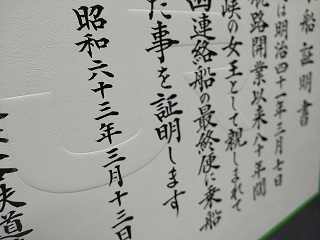 船証明書
は明治四十一年三月七日
航路開業以来八十年間
峡の女王として親しまれて
連絡船の最終便に乗船
た事を証明します
昭和六十三年三月十三日
夫道